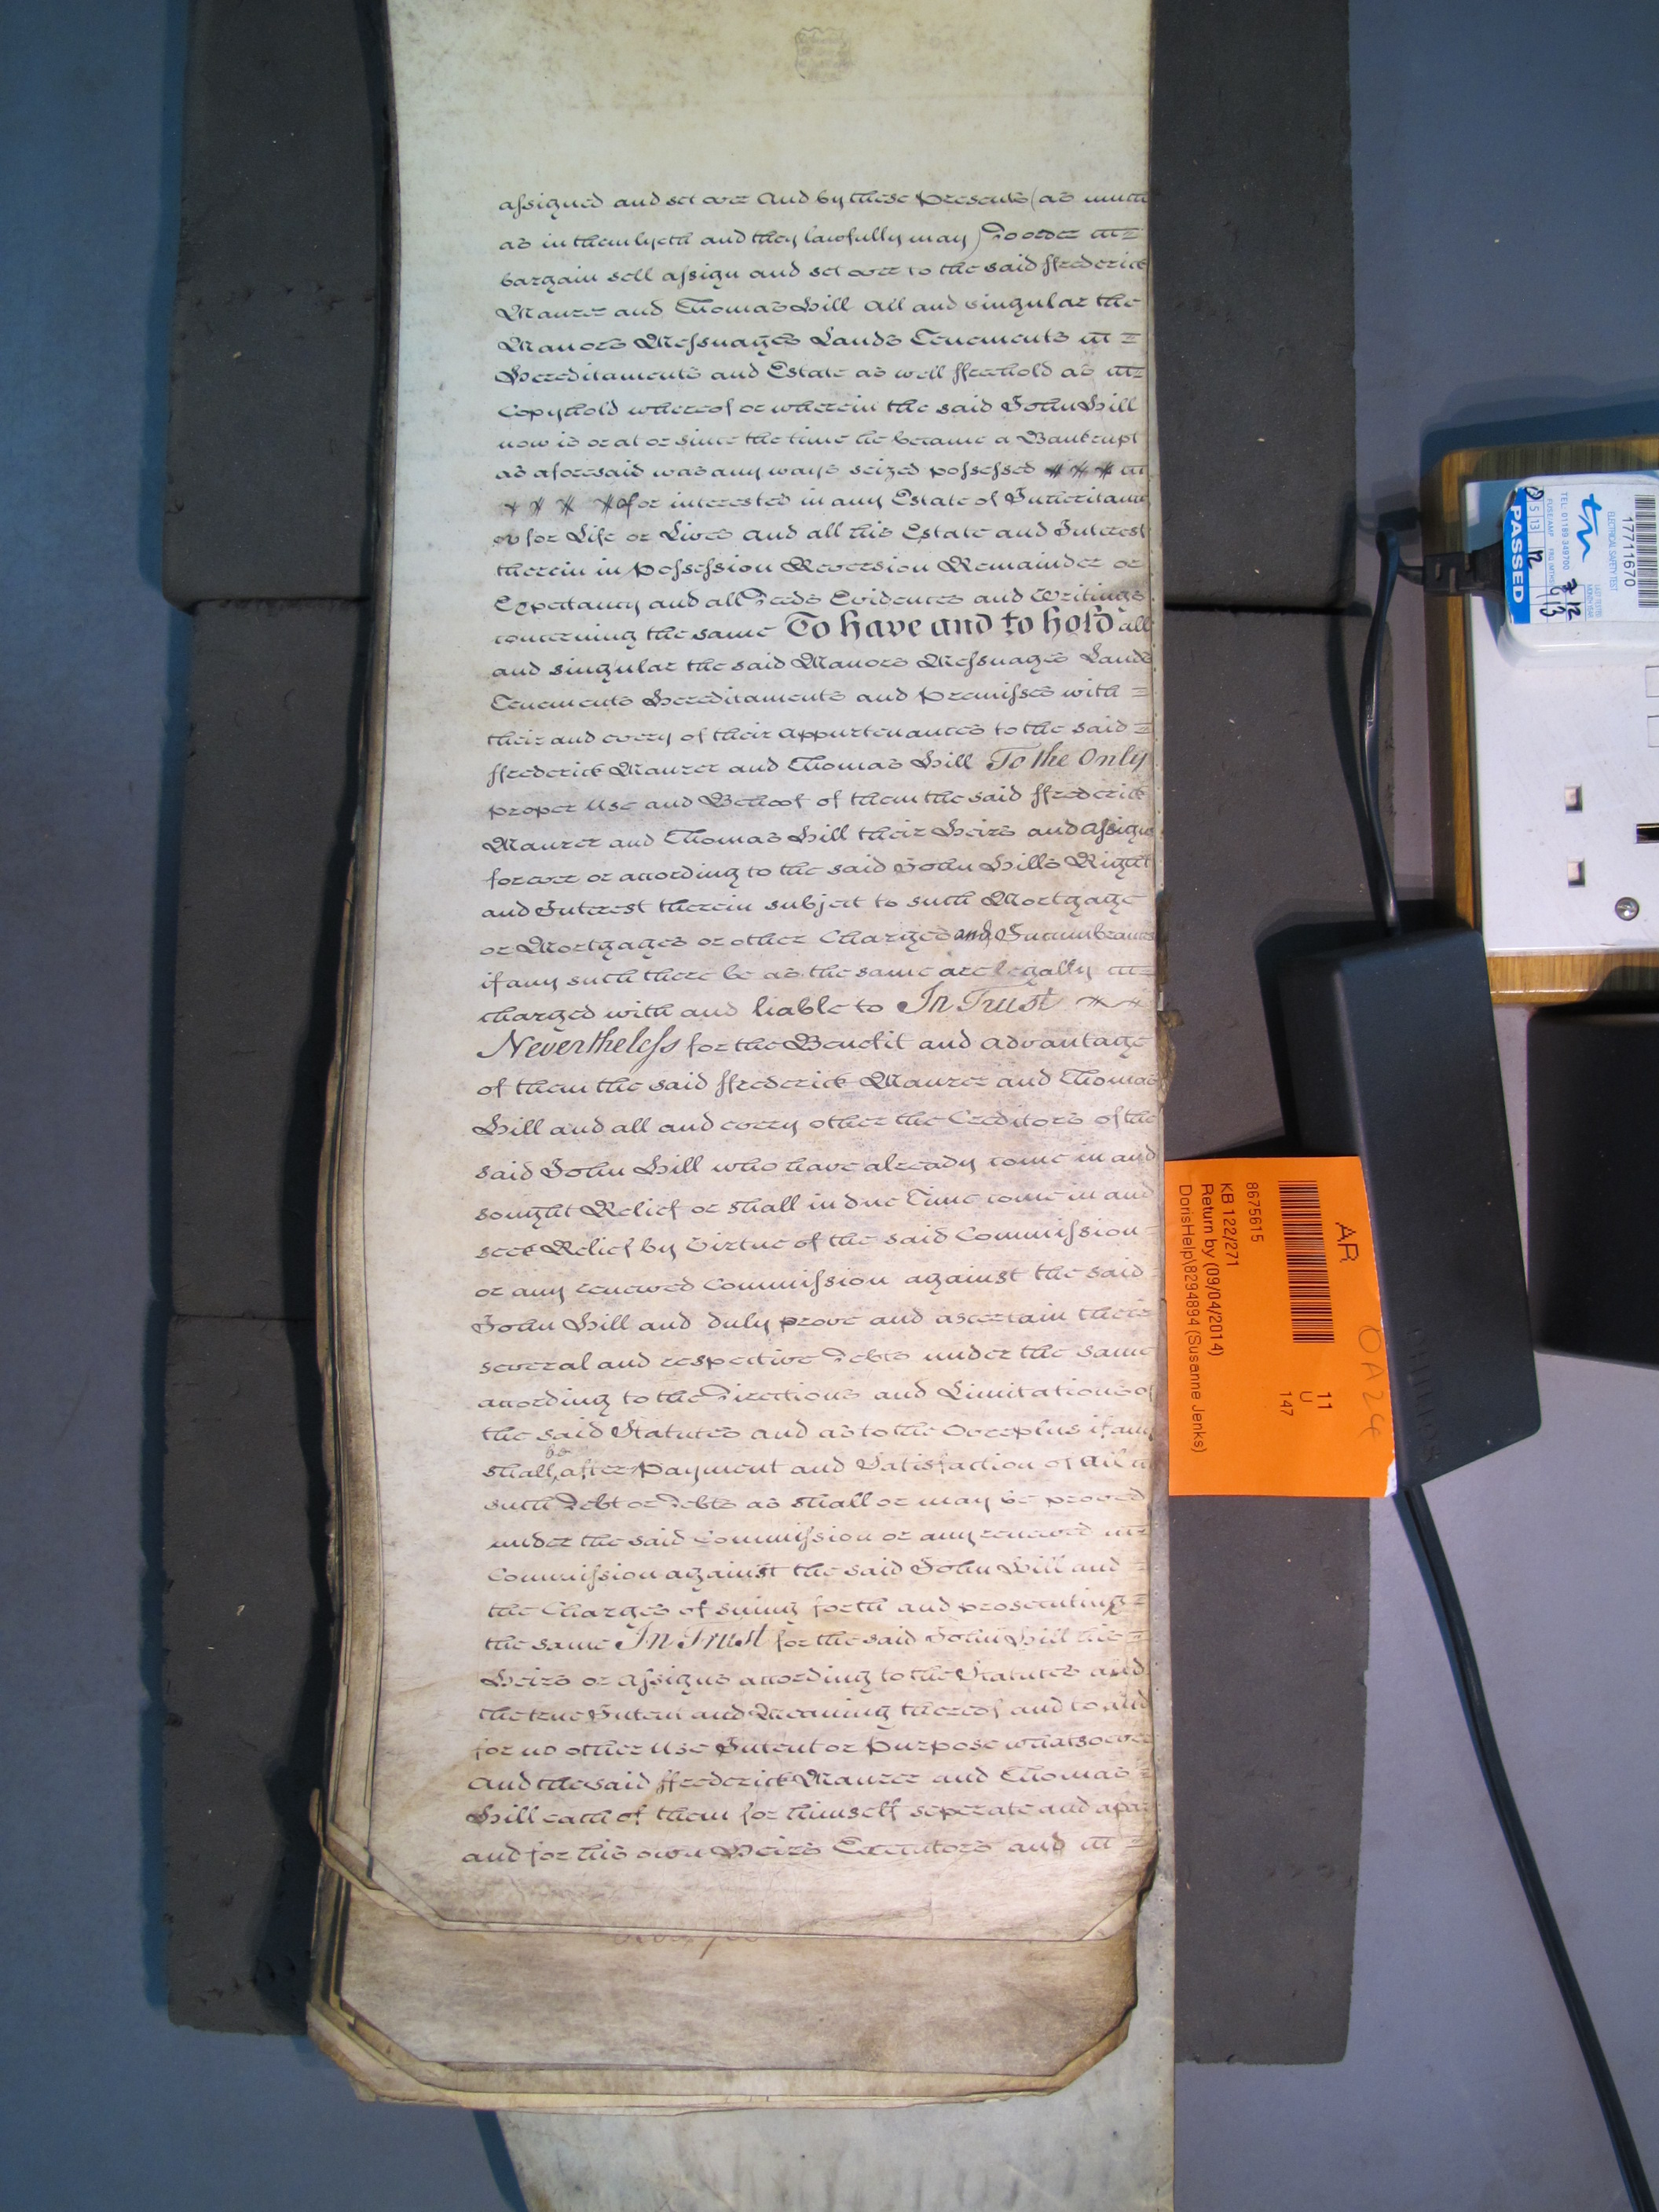 assigned and set over And by these Presents (as much
as in them lyeth and they lawfully may) Do order
bargain sell assign and set over to the said ffrederick
Maurer and Thomas Hill All and singular the
Manors Messuages Lands Tenements
Hereditaments and Estate as well ffreehold as
Copyhold whereof or wherein the said John Hill
now is or at or since the time he became a Bankrupt
as aforesaid was any ways seized possessed
of or interested in any Estate of Inheritance
or for Life or Lives and all his Estate and Interest
therein in Possession Reversion Remainder or
Expectancy and all Deeds Evidences and Writings
concerning the same To have and to hold all
and singular the said Manors Messuages Lands
Tenements Hereditaments and Premisses with
their and every of their Appurtenances to the said
ffrederick Maurer and Thomas Hill To the Only
proper Use and Behoof of them the said ffrederick
Maurer and Thomas Hill their Heirs and Assigns
for ever or according to the said John Hills Right
and Interest therein subject to such Mortgage
or Mortgages or other Charges and Incumbrances
if any such there be as the same are legally
charged with and liable to In Trust
Nevertheless for the Benefit and Advantage
of them the said ffrederick Maurer and Thomas
Hill and all and every other the Creditors of the
said John Hill who have already come in and
sought Relief or shall in due Time come in and
seek Relief by Virtue of the said Commission
or any renewed Commission against the said
John Hill and duly prove and ascertain their
several and respective Debts under the same
according to the Directions and Limitations of
the said Statutes and as to the Overplus if any
shall be after Payment and Satisfaction of All
such Debt or Debts as shall or may be proved
under the said Commission or any renewed
Commission against the said John Hill and
the Charges of suing forth and prosecuting
the same In Trust for the said John Hill his
Heirs or Assigns according to the Statutes and
the true Intent and Meaning thereof and to and
for no other Use Intent or Purpose whatsoever
And the said ffrederick Maurer and Thomas
Hill each of them for himself seperate and apart
and for his own Heirs Executors and
AR
8675615
KB 122/271
Return by (09/04/2014)
DorisHelp\8294894 (Susanne Jenks)
11
U
147
OA24
PHILIPS
17711670
ELECTRICAL SAFETY TEST
TEL: 01189 349700
PASSED